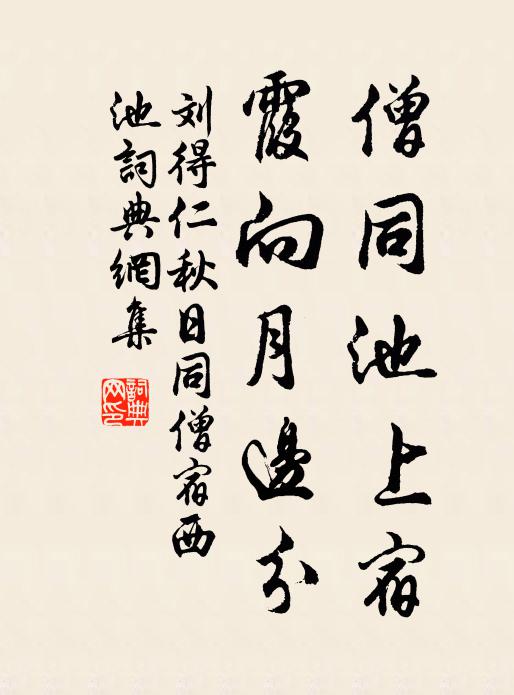 僧同池上宿
霞向月邊分
刘得仁秋日同僧宿西
池詞典網集
詞典
网印